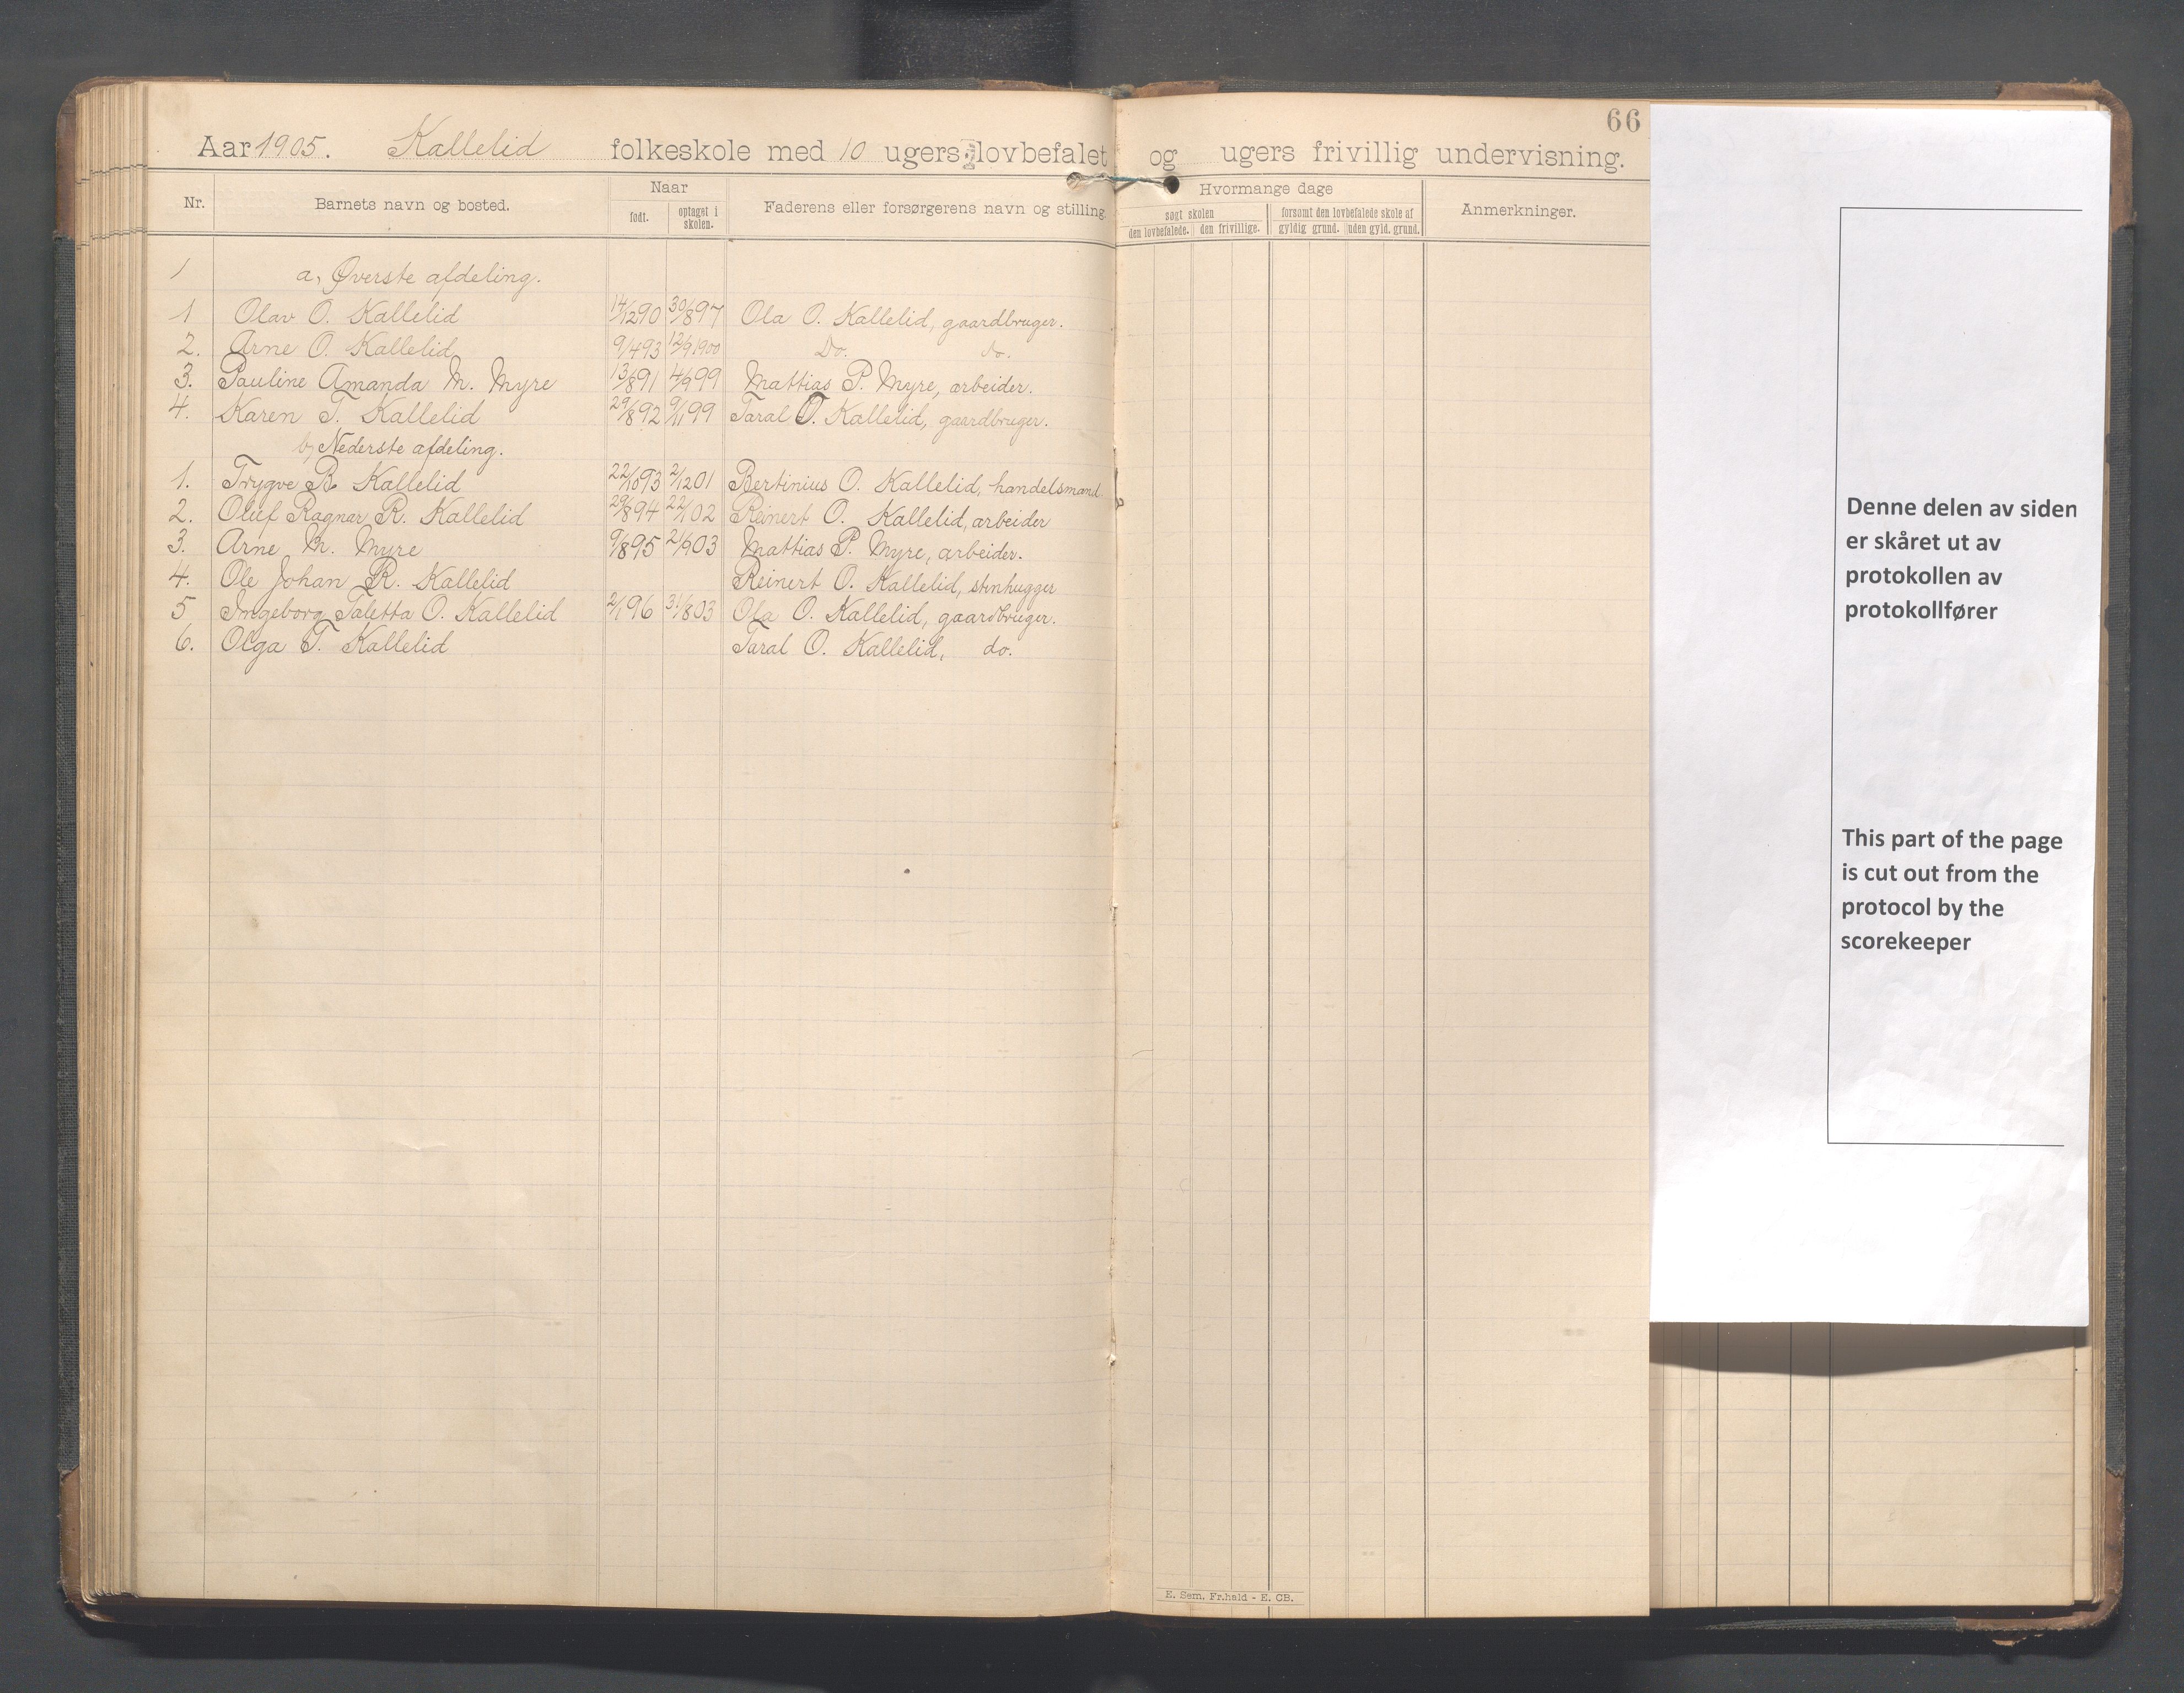 66
Aar 1905. Kallelid folkeskole med 10 ugers lovbefalet og ugers frivillig undervisning.
Nr. Barnets navn og bosted. Naar Faderens eller forsørgerens navn og stilling. Hvormange dage Anmerkninger.
født. optaget i skolen. søgt skolen forsømt den lovbefalede skole af
den lovbefalede. den frivillige. gyldig grund. uden gyld. grund.
1 a, Øverste afdeling.
1 Olav O. Kallelid 14/12 90 30/8 97 Ola O. Kallelid, gaardbruger.
2. Arne O. Kallelid 9/4 93 12/9 1900 Do. do.
3. Pauline Amanda M. Myre 13/8 91 4/9 99 Mattias P. Myre, arbeider.
4. Karen T. Kallelid 29/8 92 9/11 99 Taral O. Kallelid, gaardbruger.
b, Nederste afdeling.
1. Trygve B. Kallelid 22/10 93 2/12 01 Bertinius O. Kallelid, handelsmand
2. Oluf Ragnar R. Kallelid 29/8 94 22/1 02 Reinert O. Kallelid, arbeider
3. Arne M. Myre 9/8 95 21/9 03 Mattias P. Myre, arbeider.
4. Ole Johan R. Kallelid Reinert O. Kallelid, stenhugger
5 Ingeborg Taletta O. Kallelid 2/1 96 31/8 03 Ola O. Kallelid, gaardbruger.
6. Olga T. Kallelid Taral O. Kallelid, do.
E. Sem, Fr.hald - E. CB.
Denne delen av siden
er skåret ut av
protokollen av
protokollfører
This part of the page
is cut out from the
protocol by the
scorekeeper